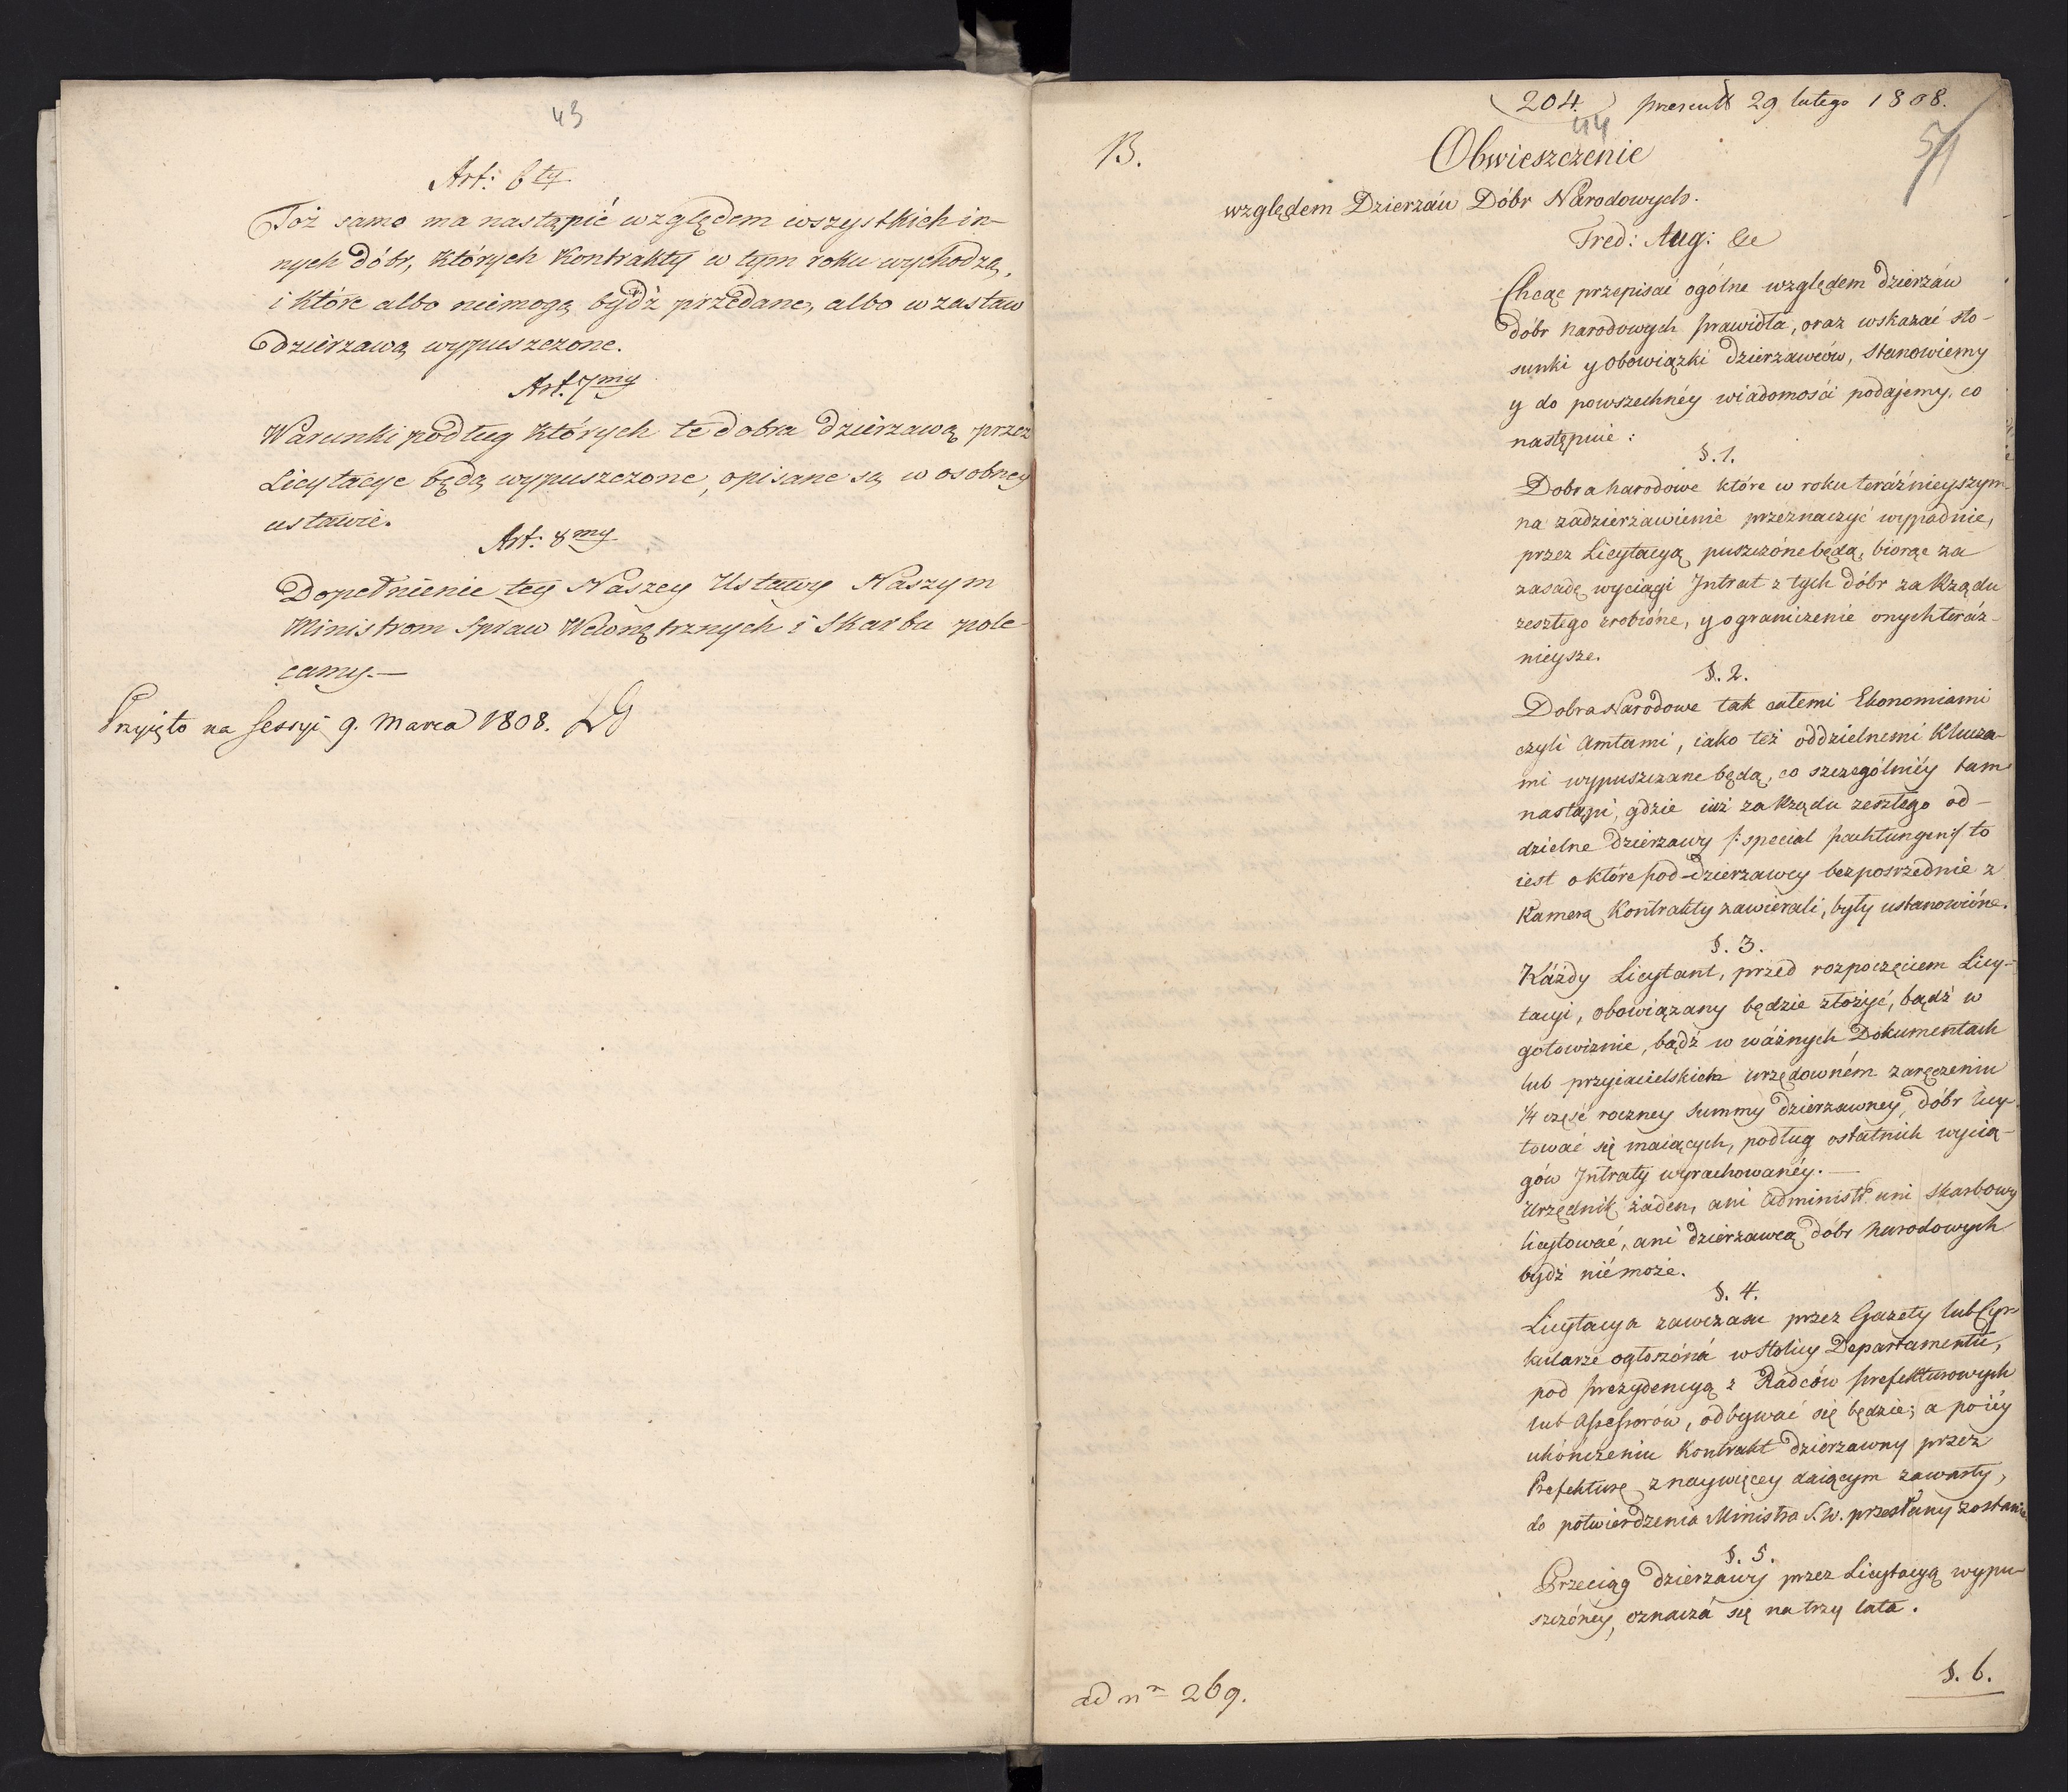 43
Art: 6ty
Toż samo ma nastąpić względem wszystkich in-
nych dóbr, których Kontrakty w tym roku wychodzą,
i które albo niemogą bydź przedane, albo w zastaw
dzierzawą wypuszczone.
Art. 7my
Warunki podług których te dobra dzierzawą przez
Licytacye będą wypuszczone, opisane są w osobney
ustawie.
Art: 8my
Dopełnienie tey Naszey Ustawy Naszym
Ministrom Spraw Wewnętrznych i Skarbu pole
camy.—
Przyięto na Sessyi 9. Marca 1808.
204. 29 lutego 1808.
44
51
B.
Obwieszczenie
względem Dzierzáw Dóbr Narodowych.
Fred: Aug: &c
Chcąc przepisać ogólne względem dzierzáw
dóbr narodowych prawidła, oraz wskazać sto-
sunki y obowiązki dzierzawców, stanowiemy
y do powszechnéy wiadomości podajemy, co
następuie:
§. 1.
Dobra narodowe które w roku teráźnieyszym
na zadzierzawienie przeznaczyć wypadnie,
przez Licytacyą puszczóne będą, biorąc za
zasadę wyciągi Jntrat z tych dóbr za Rządu
zeszłego zrobióne, y ograniczenie onych teráz-
nieysze.
§. 2.
Dobra Narodowe tak całemi Ekonomiami
czyli Amtami, iako też oddzielnemi Klucza-
mi wypuszczane będą, co szczególniéy tam
nastąpi, gdzie iuż za Rządu zeszłego od-
dzielne dzierzawy /: special pachtungen :/ to
iest o które pod-dzierzawcy bezpośrzednie z
Kamerą Kontrakty zawierali, były ustanowióne.
§. 3.
Káżdy Licytant, przed rozpoczęciem Licy-
tacyi, obowiązany będzie złożyć, bądź w
gotowiznie, bądź w wáżnych Dokumentach
lub przyiacielskich urzędowném zaręczeniu
1/4 część roczney Summy dzierzawney, dóbr licy-
tować się maiących, podług ostatnich wycią-
gów Jntraty wyrachowanéy.—
Urzędnik żáden, ani administr: ani skarbowy
licytować, ani dzierzawcą dóbr narodowych
bydź niémoże.
§. 4.
Licytacya zawczasu przez Gazety lub Cyr-
kularze ogłoszóná w Stolicy Departamentu,
pod prezydencyą z Radców prefekturowych
lub Assessorów, odbywać się będzie; a po iéy
ukóńczeniu Kontrakt dzierzawny przez
Prefekturę z naywięcey daiącym zawarty,
do potwierdzenia Ministra S. W. przesłany zostanie
§. 5.
Przeciąg dzierzawy przez Licytacyą wypu-
szczóney, oznaczá się na trzy lata.
§. 6.
ad nm 269.